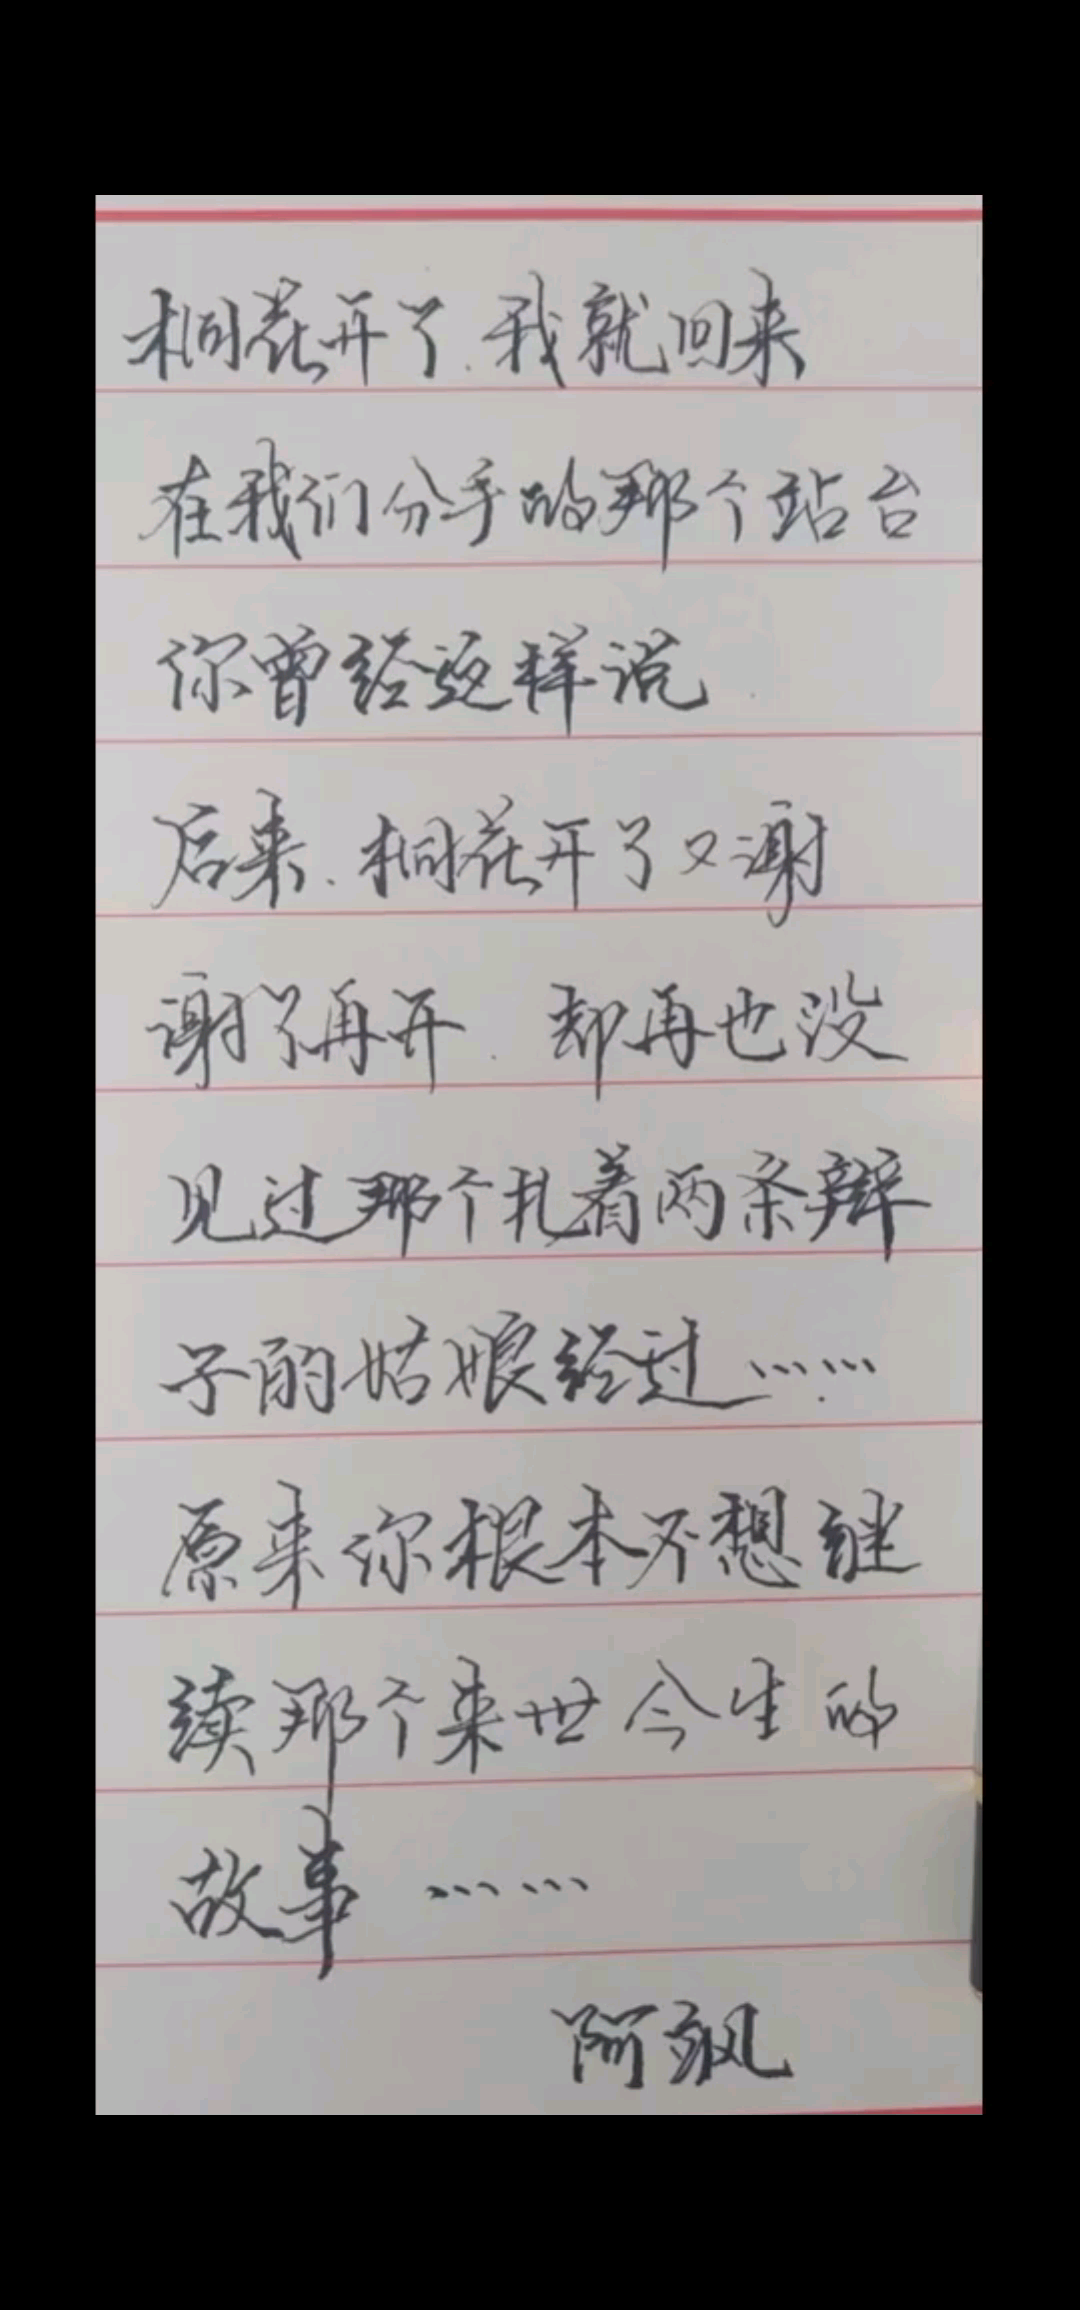 桐花开了.我就回来
在我们分手的那个站台
你曾经这样说
后来.桐花开了又谢
谢了再开.却再也没
见过那个扎着两条辫
子的姑娘经过……
原来你根本不想继
续那个来世今生的
故事……
阿飒